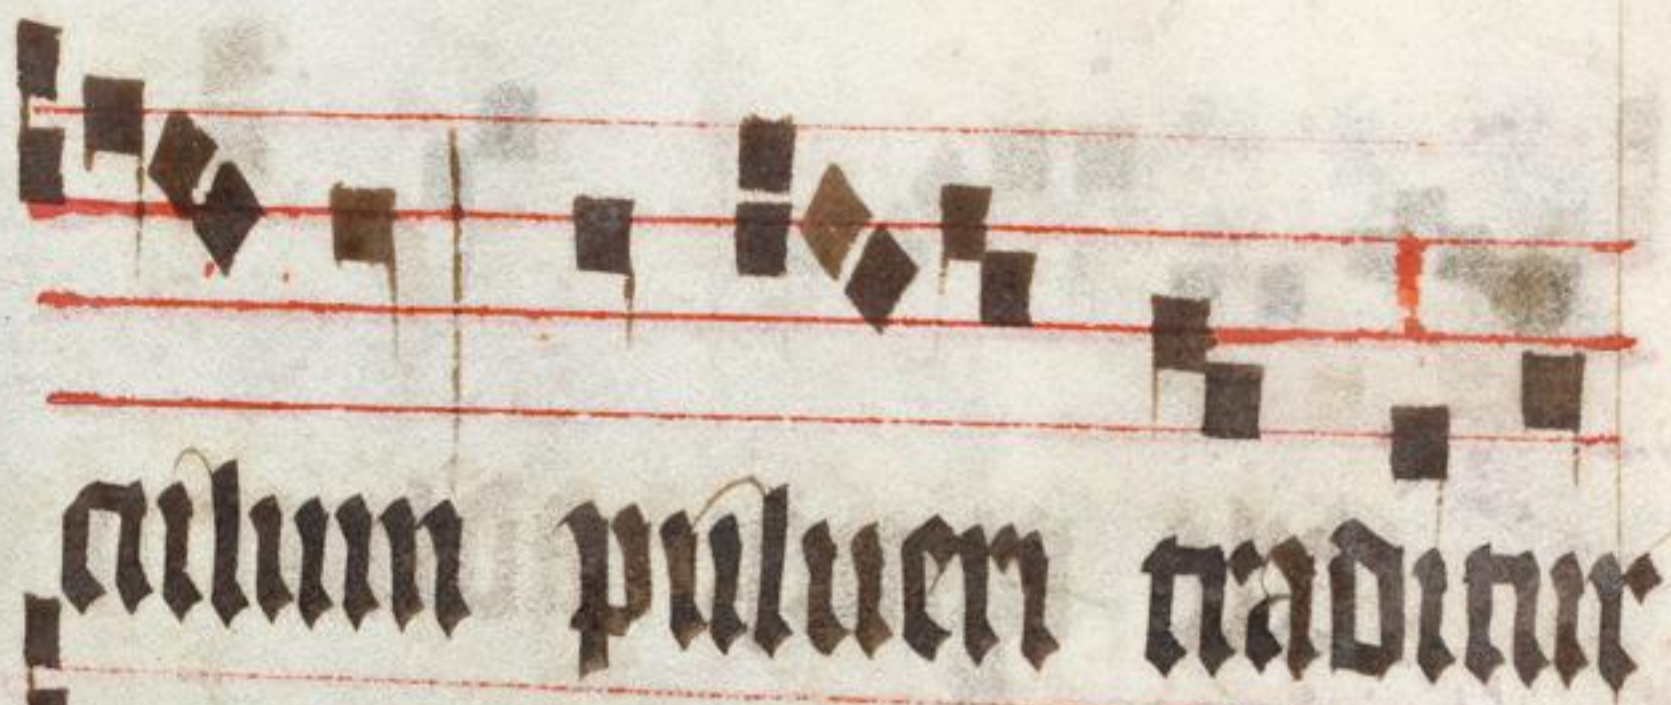 culum pulueri traditur